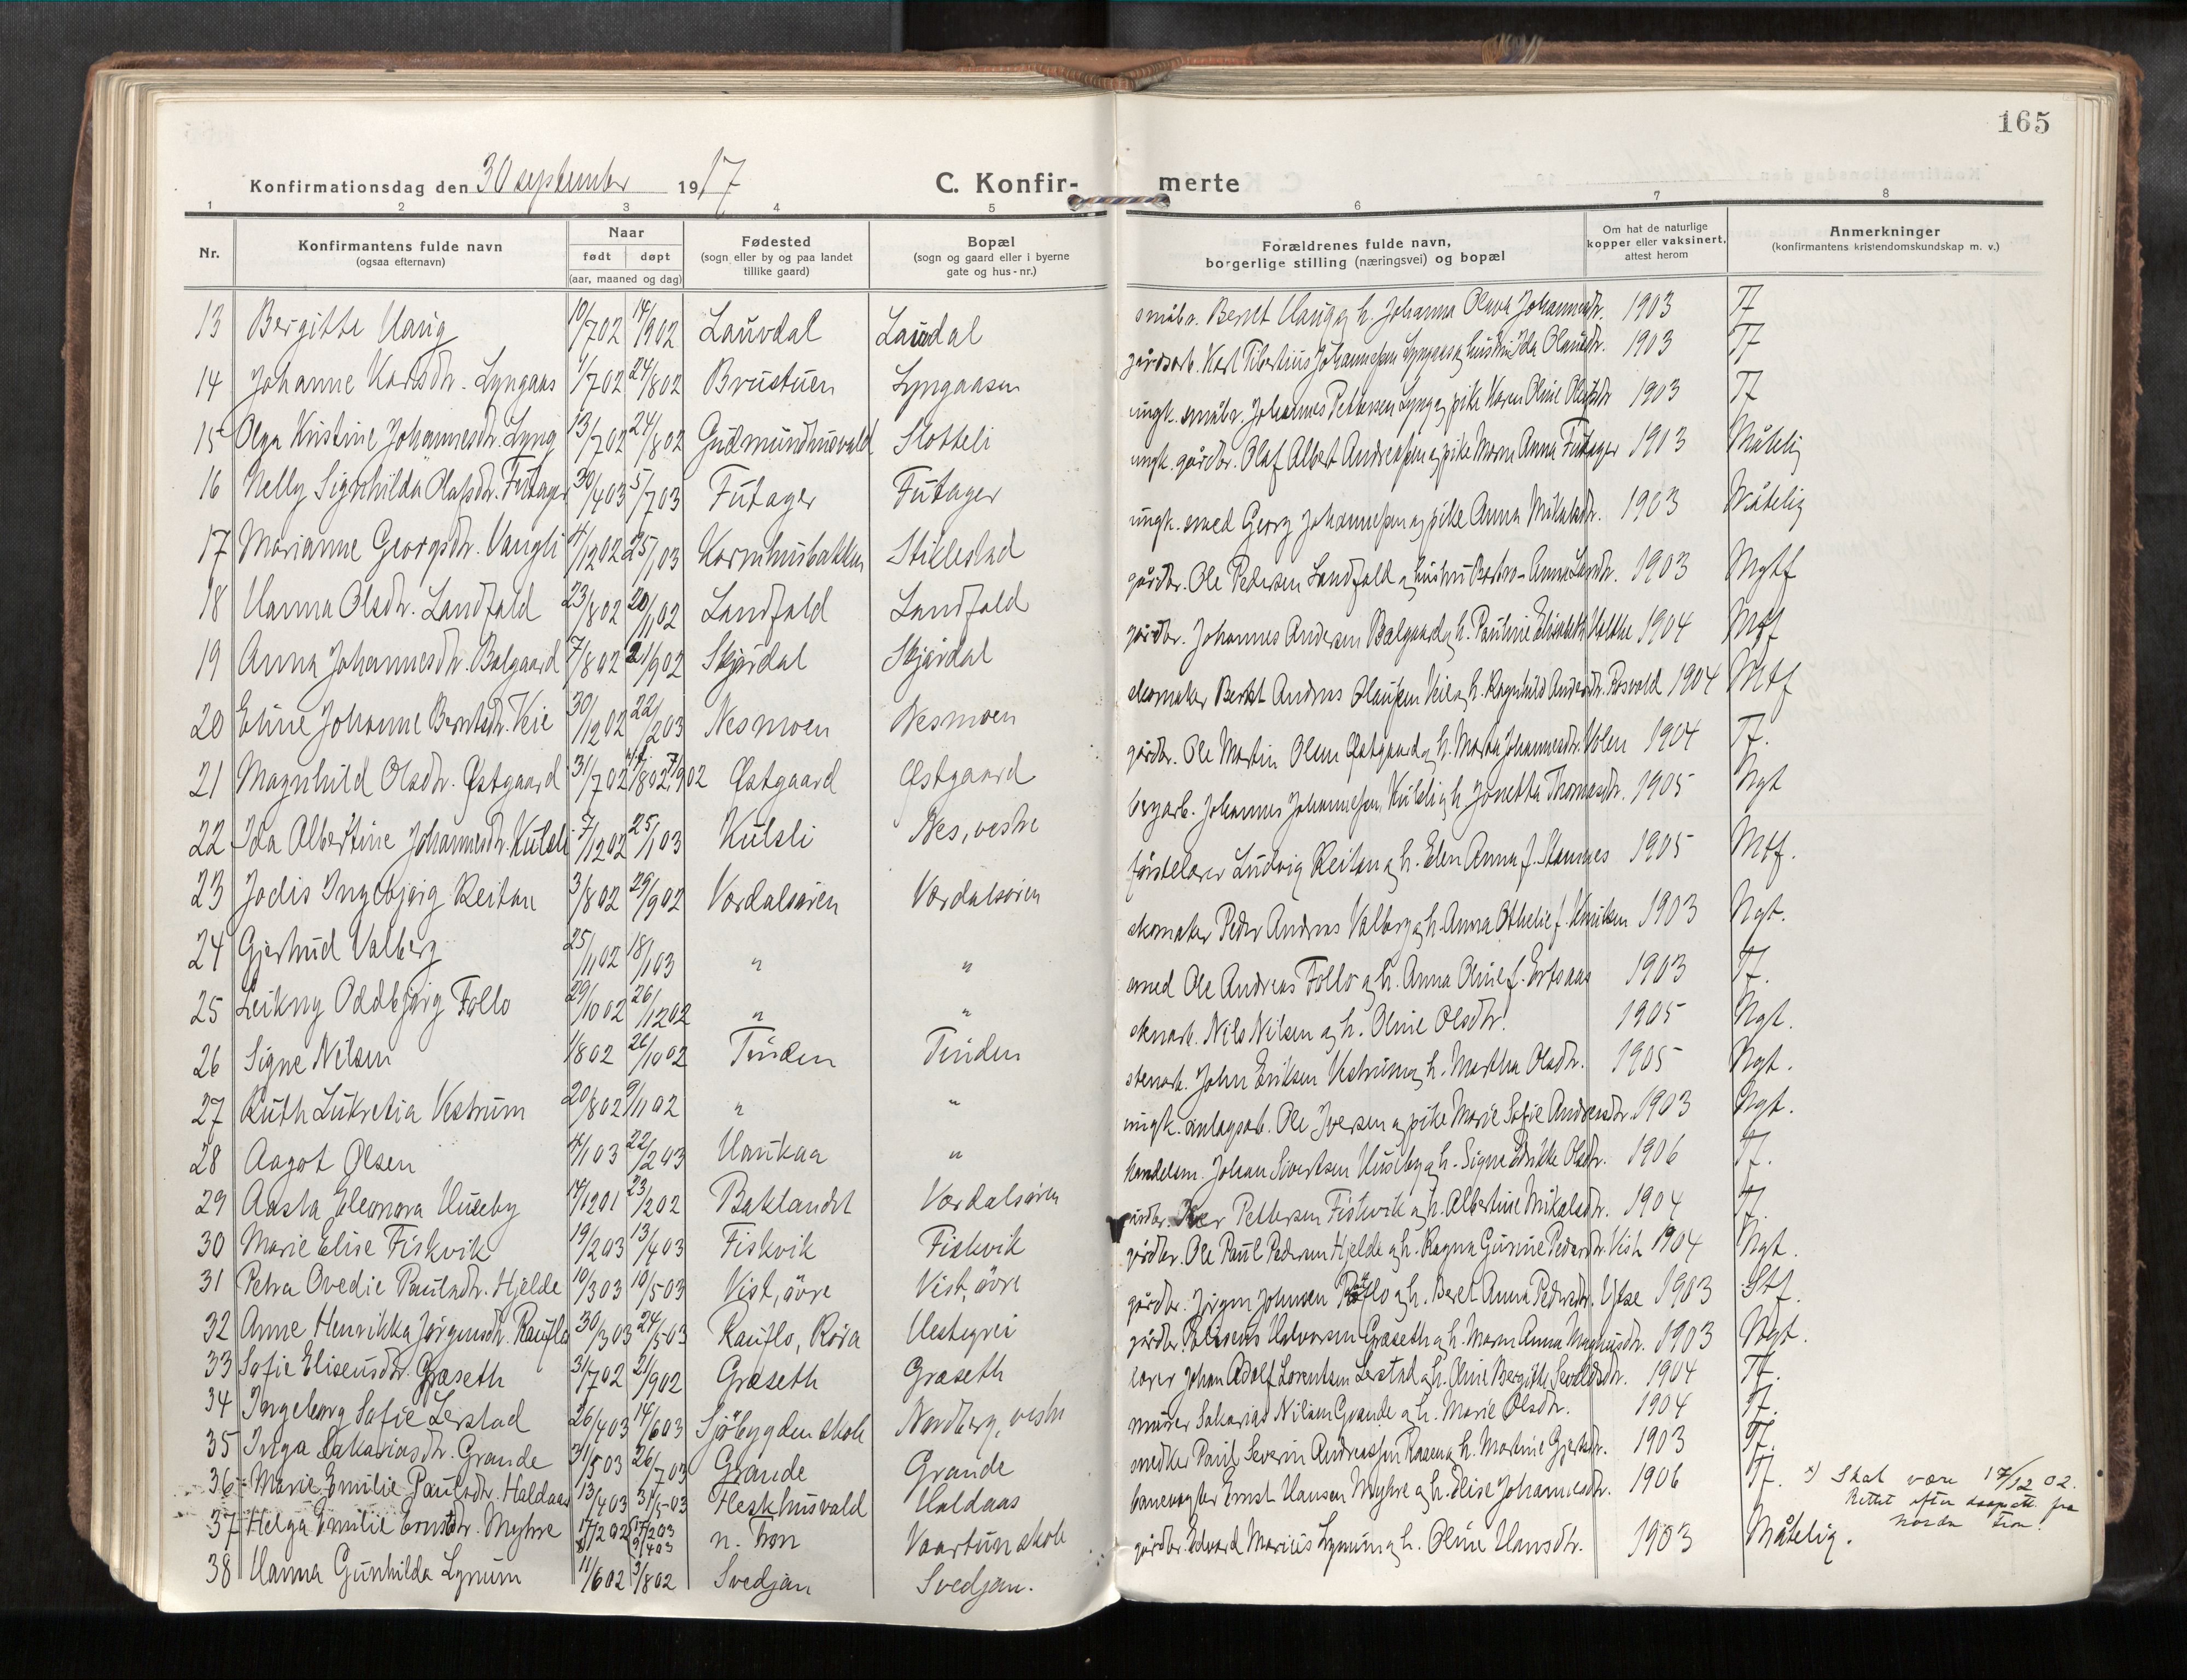 165
Konfirmationsdag den 30 september 1917
C. Konfir- merte
1 2 3 4 5 6 7 8
Nr. Konfirmantens fulde navn (ogsaa efternavn) Naar født døpt (aar, maaned og dag) Fødested (sogn eller by og paa landet tillike gaard) Bopæl (sogn og gaard eller i byerne gate og hus-nr.) Forældrenes fulde navn, borgerlige stilling (næringsvei) og bopæl Om hat de naturlige kopper eller vaksinert, attest herom Anmerkninger (konfirmantens kristendomskundskap m. v.)
13 Bergitte Haug 10/7 02 14/9 02 Lauvdal Lauvdal småbr. Berdt Haug og h. Johanna Olava Johannesdr. 1903 Tf
14 Johanne Karlsdr. Lyngaas 1/7 02 24/8 02 Brustuen Lyngaasen gårdsarb. Karl Tibertius Johannessen Lyngaas og hustru Ida Olausdr. 1903 Tf
15 Olga Kristine Johannesdr. Lyng 13/7 02 24/8 02 Gudmundhusvald Slotteli ungk. småbr. Johannes Pettersen Lyng og pike Karen Oline Olausdr 1903 Tf
16 Nelly Signhilda Olafsdr. Futager 30/4 03 5/7 03 Futager Futager ungk. gårdbr. Olaf Albert Andreassen og pike Maren Anna Futager 1903 Måtelig
17 Marianne Georgsdr. Haugli 4/12 02 25/1 03 Kornhusbakken Stiklestad ungk. smed Georg Johannessen og pike Anna Mikalsdr. 1903 Måtelig
18 Hanna Olsdr. Landfald 23/8 02 20/11 02 Landfald Landfald gårdbr. Ole Pedersen Landfald og hustru Barbro-Anna Larsdr. 1903 Mgtf
19 Anna Johannesdr. Balgaard 7/8 02 21/9 02 Skjørdal Skjørdal gårdbr. Johannes Andersen Balgaard og h. Pauline Elisabeth Holthe 1904 Mtf
20 Eline Johanne Berntsdr. Veie 30/12 02 22/2 03 Nesmoen Nesmoen skomaker Berdt Andreas Olaussen Veie og h. Ragnhild Andersdr. Rosvold 1904 Mtf
21 Magnhild Olsdr. Østgaard 31/7 02 7/9 02 Østgaard Østgaard gårdbr. Ole Martin Olsen Østgaard og h. Marta Johannesdr. Volen 1904 Tf.
22 Ida Albertine Johannesdr. Kulsli 7/12 02 25/1 03 Kulsli Nes, vestre bergarb. Johannes Johannessen Kulsli og h. Jonetta Thomasdr. 1905 Ngt
23 Jodis Ingebjørg Reitan 3/8 02 29/9 02 Værdalsøren Værdalsøren førstelærer Ludvig Reitan og h. Elen Anna f. Stamnes 1905 Mtf.
24 Gjertrud Valberg 25/11 02 18/1 03 " " skomaker Peder Andreas Valberg og h. Anna Othelie f. Henriksen 1903 Ngt.
25 Leikny Oddbjørg Follo 29/10 02 26/12 02 " " smed Ole Andreas Follo og h. Anna Oline f. Ertsaas 1903 Tf.
26 Signe Nilsen 1/8 02 26/10 02 Tinden Tinden stenarb. Nils Nilsen og h. Oline Olsdtr. 1905 Ngt.
27 Ruth Lukretia Vestrum 20/8 02 9/11 02 " " stenarb. John Eriksen Vestrum og h. Martha Olsdtr. 1905 Ngt.
28 Aagot Olsen 4/1 03 22/2 03 Haukaa " ungk. anlagsarb. Ole Iversen og pike Marie Sofie Andreasdr. 1903 Ngt.
29 Aasta Eleonora Huseby 14/12 01 23/2 02 Baklandet Værdalsøren handelsm. Johan Sivertsen Huseby og h. Signe Edrikke Olsdtr. 1906 Tf.
30 Marie Elise Fiskvik 19/2 03 13/4 03 Fiskvik Fiskvik gårdbr. Peter Pettersen Fiskvik og h. Albertine Mikalsdtr. 1904 Tf.
31 Petra Ovedie Paulsdtr. Hjelde 10/3 03 10/5 03 Vist, øvre Vist, øvre gårdbr. Ole Paul Pedersen Hjelde og h. Ragna Gurine Pedersdtr. Vist 1904 Ngt.
32 Anne Henrikka Jørgensdr. Rauflo 30/3 03 24/5 03 Rauflo, Røra Hestegrei gårdbr. Jørgen Johnsen Rauflo og h. Beret Anna Pedersdtr. Ulse 1903 Stf.
33 Sofie Eliseusdtr. Græseth 31/7 02 21/9 02 Græseth Græseth gårdbr. Eliseus Halvorsen Græseth og h. Maren Anna Magnusdtr. 1903 Ngt.
34 Ingeborg Sofie Lerstad 26/4 03 14/6 03 Sjøbygden skole Nordberg, vestre lærer Johan Adolf Lorentsen Lerstad og h. Oline Bergitte Sevaldsdtr. 1904 Tf.
35 Inga Sakariasdtr. Grande 31/5 03 26/7 03 Grande Grande murer Sakarias Nilsen Grande og h. Marie Olsdtr. 1904 Tf.
36 Marie Emilie Paulsdtr. Haldaas 13/4 03 31/5 03 Fleskhusvald Haldaas snedker Paul Severin Andreassen Raaen og h. Martine Gjertsdr. 1903 Tf.
37 Helga Emilie Ernstdtr. Myhre 17/2 02 x) 17/2 03 2/4 03 n. Fron Vaartun skole banevogter Ernst Hansen Myhre og h. Elise Johannesdtr. 1906 Tf. x) Skal være 17/12 02.
Rettet efter daapsatt. fra
nordre Fron.
38 Hanna Gunhilda Lynum 11/6 02 3/8 02 Svedjan Svedjan. gårdbr. Edvard Marius Lynum og h. Oline Hansdtr. 1903 Måtelig.